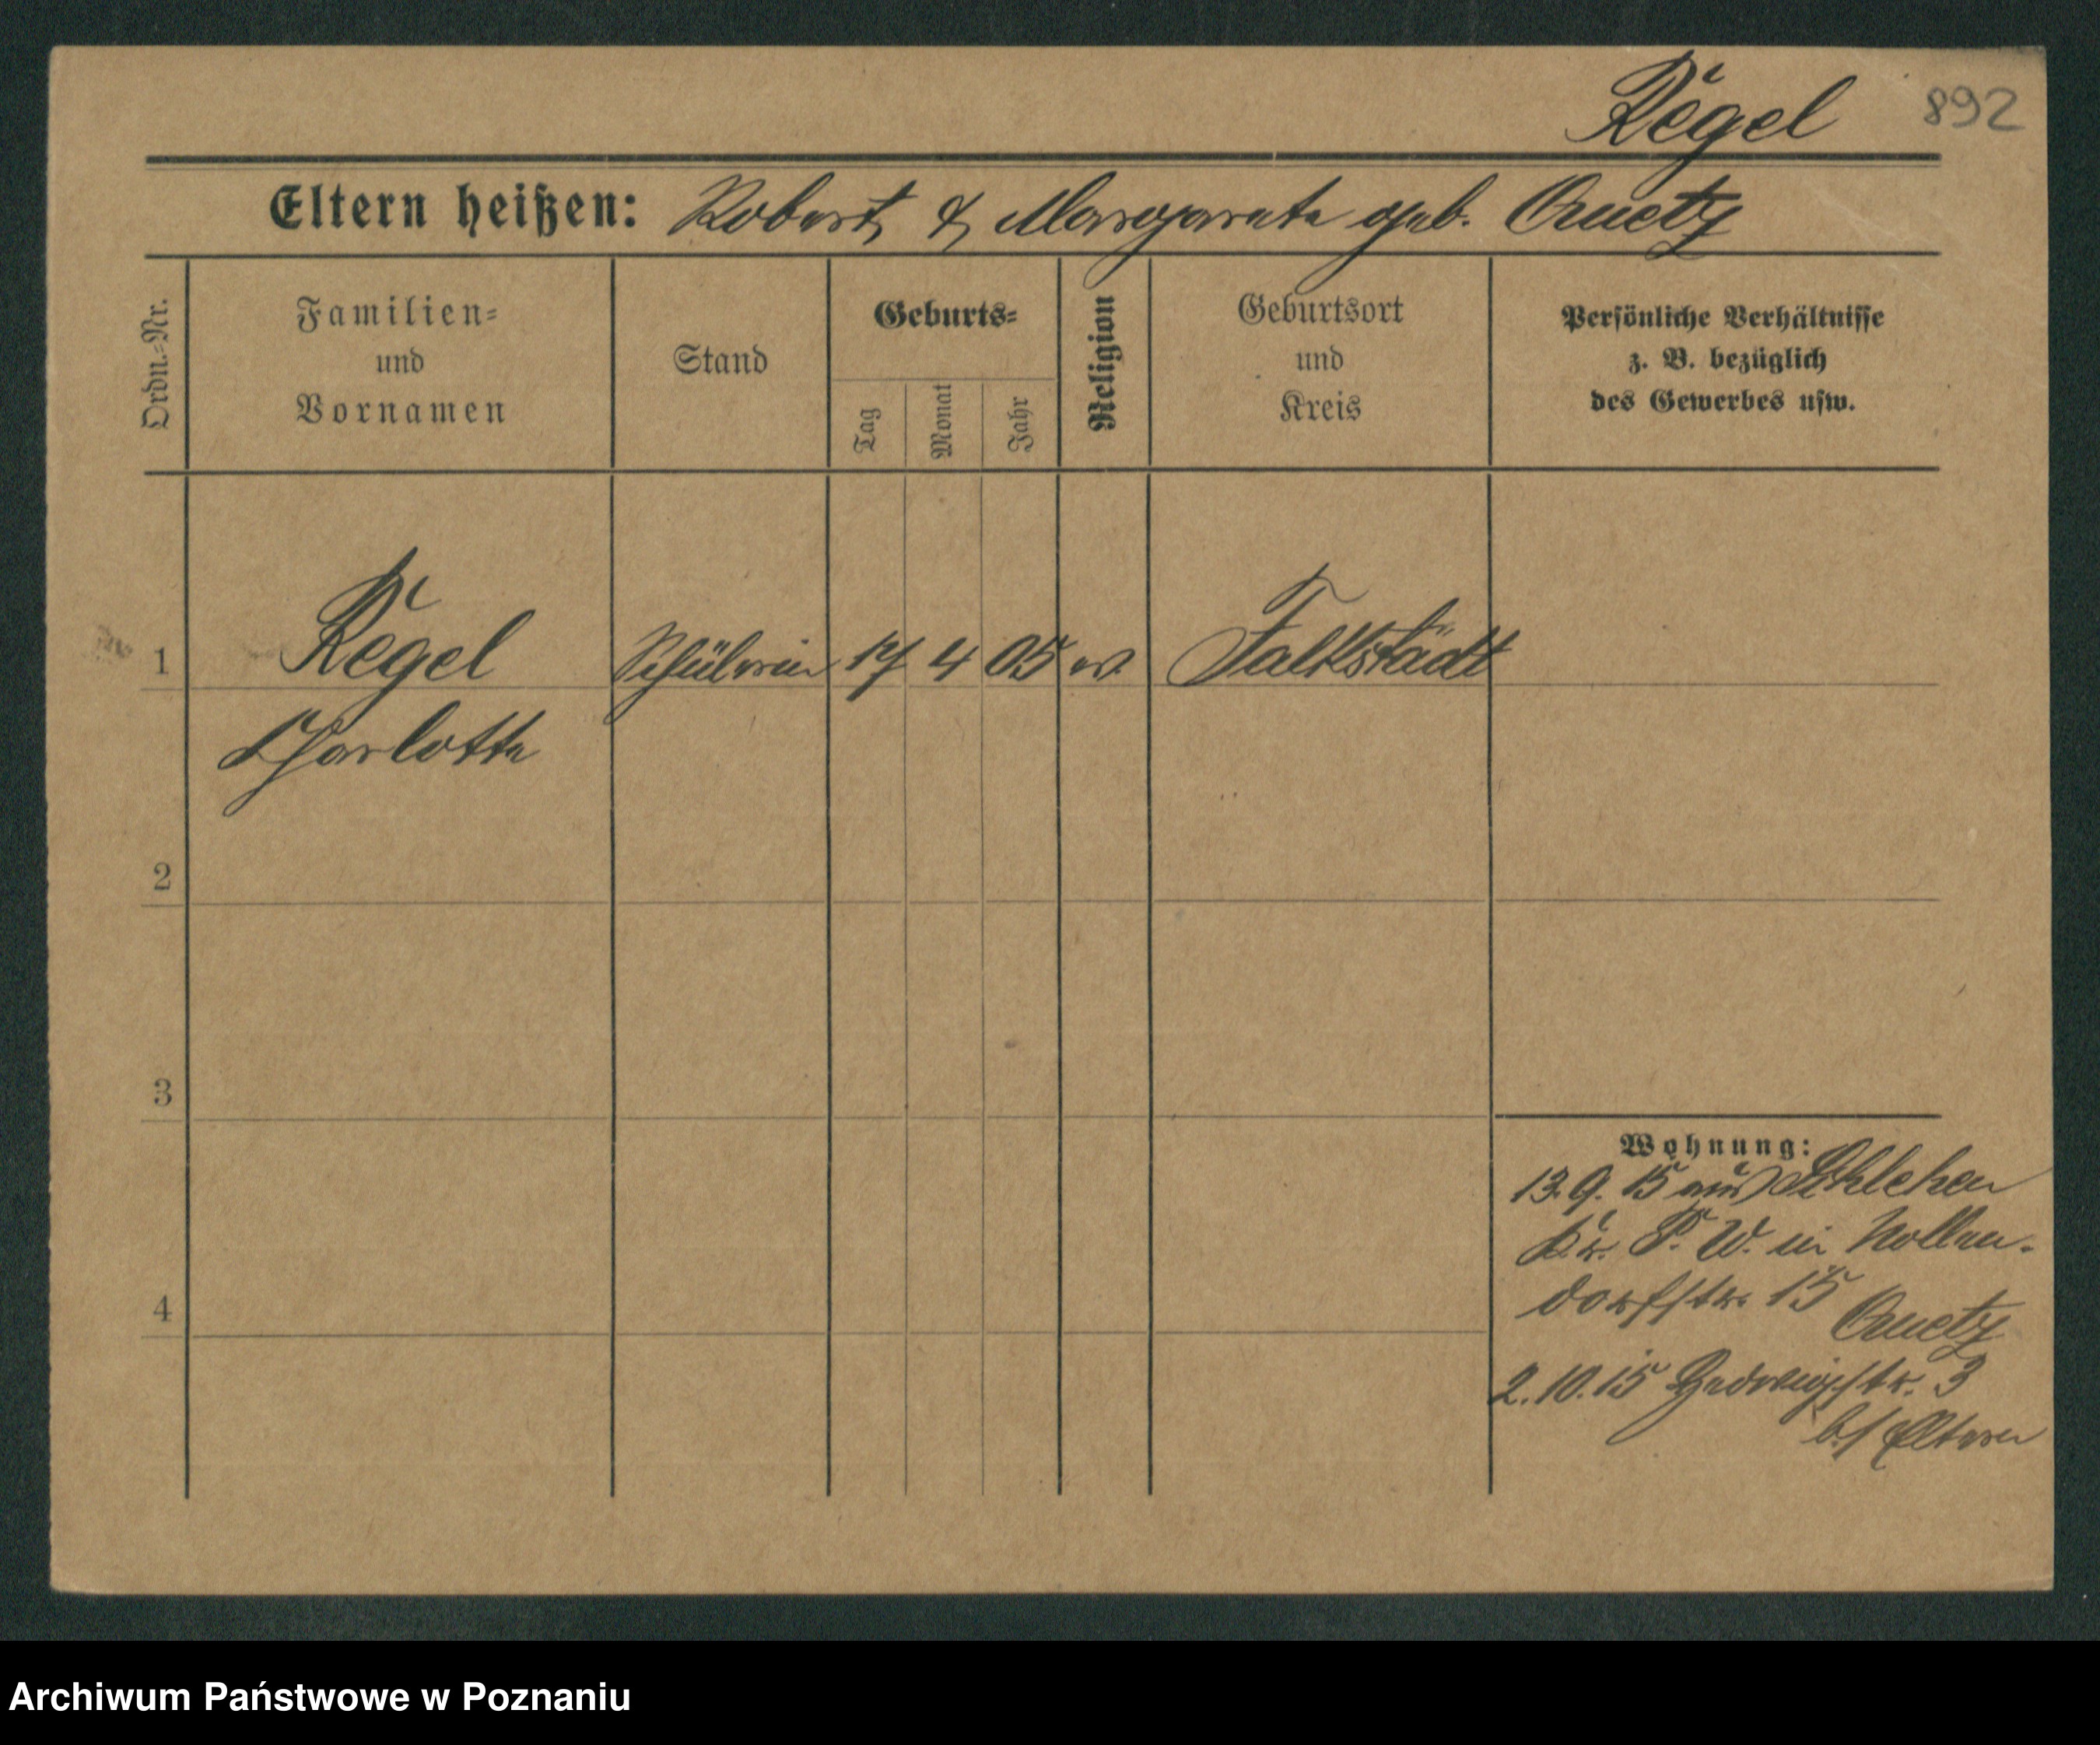 Regel 892
Eltern heißen: Robert & Margarete geb. Quetz
Ordn.-Nr.
Familien-
und
Vornamen
Stand
Geburts-
Tag
Monat
Jahr
Religion
Geburtsort
und
Kreis
Persönliche Verhältnisse
z. B. bezüglich
des Gewerbes usw.
1 Regel Schülerin 17 4 05 ev. Falkstädt
Charlotte
2
3
4
Wohnung:
13.9.15 aus Schlehen
Kr. P. W. in Nollen-
dorfstr. 15
Quetz
2.10.15 Hedwigstr. 3
b/ Eltern
Archiwum Państwowe w Poznaniu